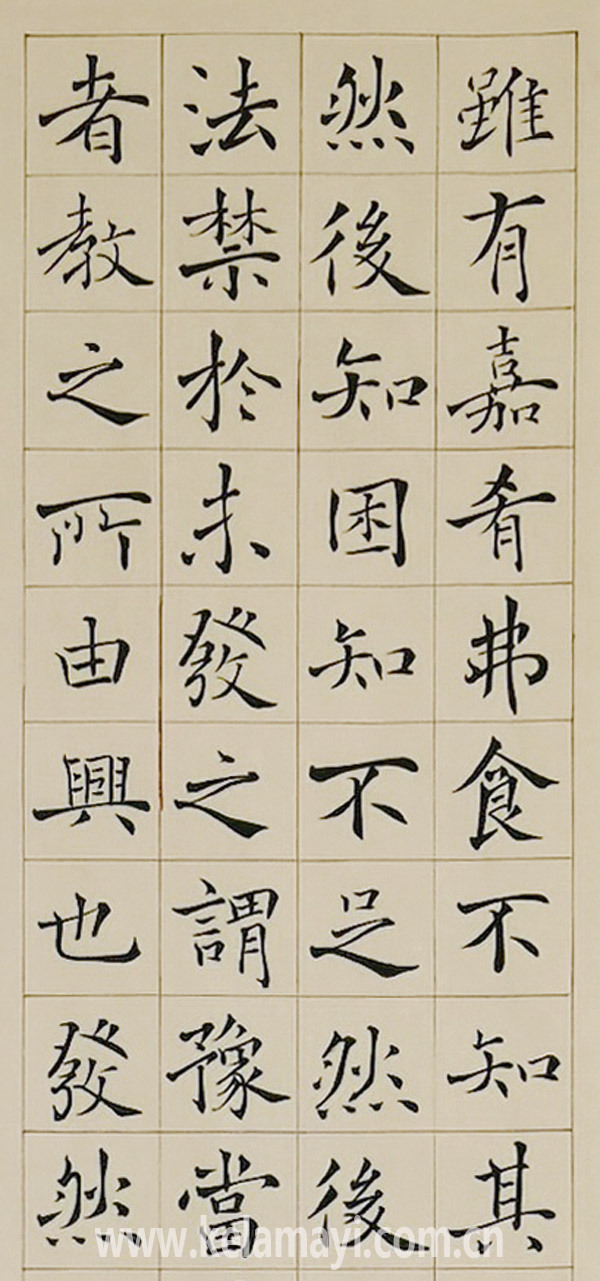 雖有嘉肴弗食不知其
然後知困知不足然後
法禁於未發之謂豫當
者教之所由興也發然
www.kelamayi.com.cn